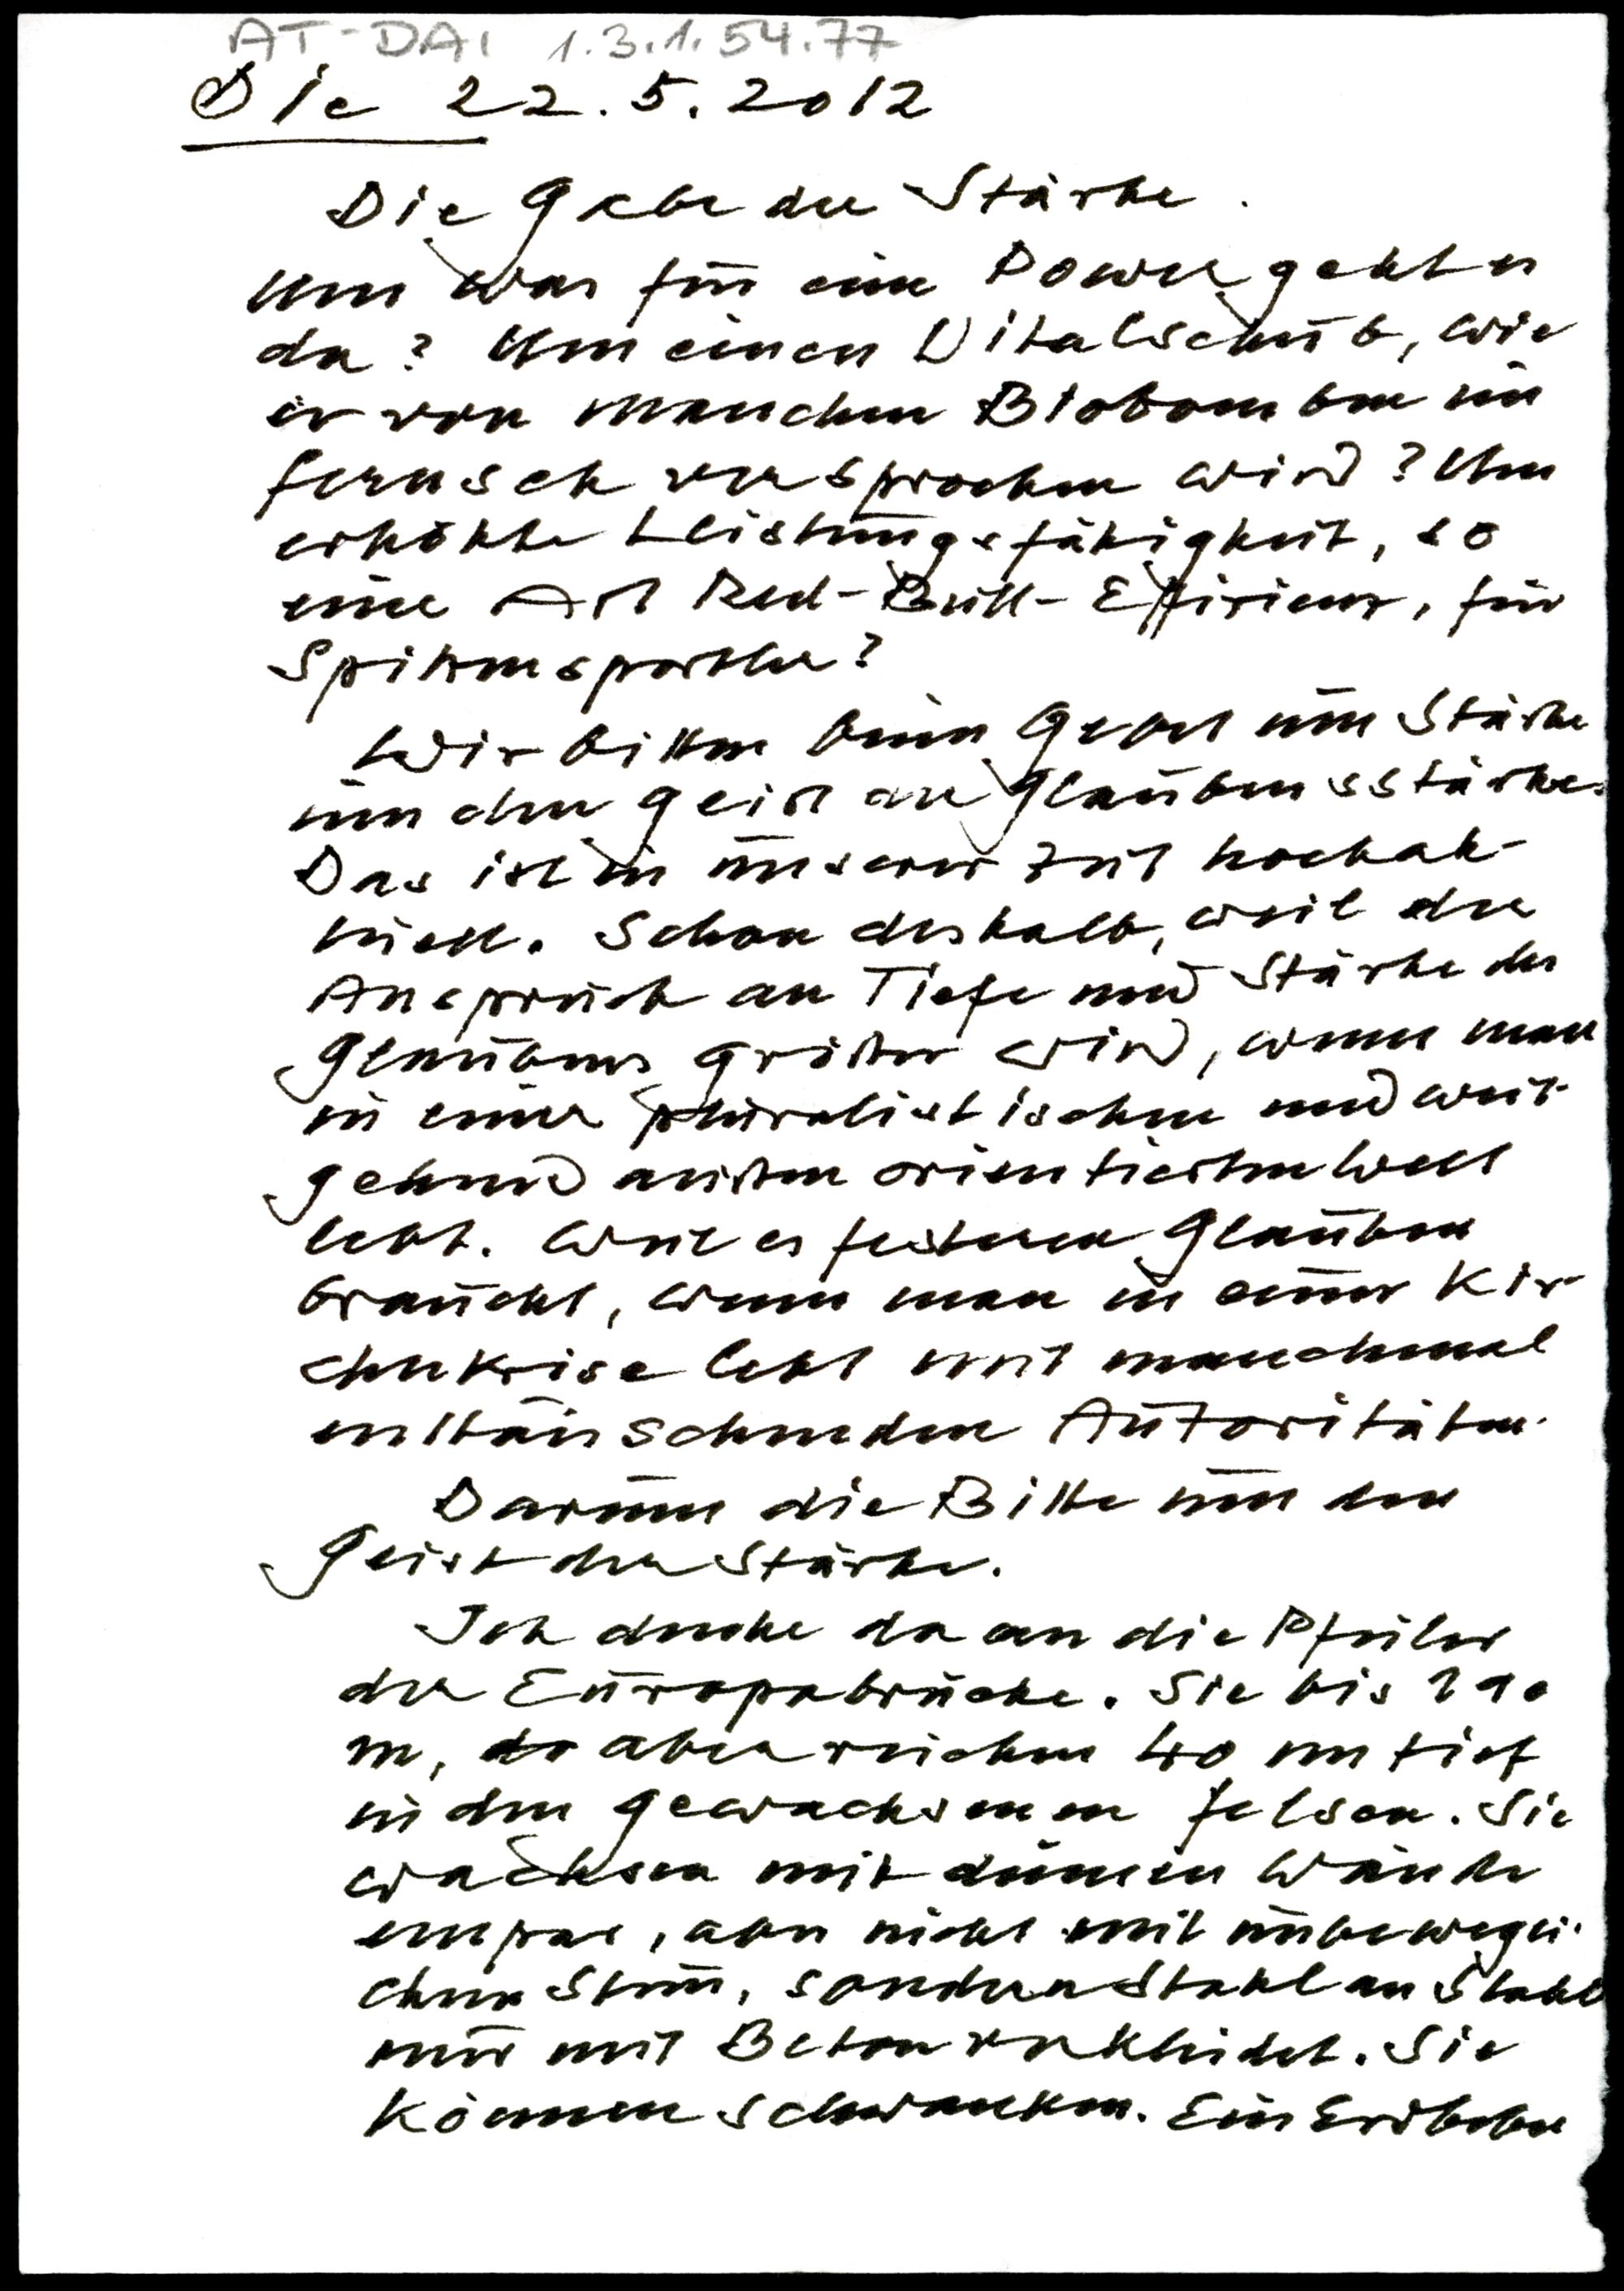 AT-DAI 1.3.1.54.77
Die 22.5.2012
Die Gabe der Stärke.
Um was für eine Power geht es
da? Um einen Vitalschub, wie
er von manchen Biobomben im
Fernseh versprochen wird? Um
erhöhte Leistungsfähigkeit, so
eine Art Red-Bull-Effizienz, für
Spitzensportler?
Wir bitten beim Gebet um Stärke
um den Geist der Glaubensstärke.
Das ist in unserer Zeit hochak-
tuell. Schon deshalb, weil der
Anspruch an Tiefe und Stärke des
Glaubens größer wird, wenn man
in einer pluralistischen und weit-
gehend außen orientierten Welt
lebt. Weil es festeren Glauben
braucht, wenn man in einer Kir-
chenkrise lebt mit manchmal
enttäuschenden Autoritäten.
Darum die Bitte um den
Geist der Stärke.
Ich denke da an die Pfeiler
der Europabrücke. Sie bis 190
m, da aber reichen 40 m tief
in den gewachsenen Felsen. Sie
wachsen mit dünnen Wänden
empor, aber nicht mit unbewegli-
chem Stein, sondern Stahl an Stahl
nur mit Beton verkleidet. Sie
können schwanken. Ein Erdbeben